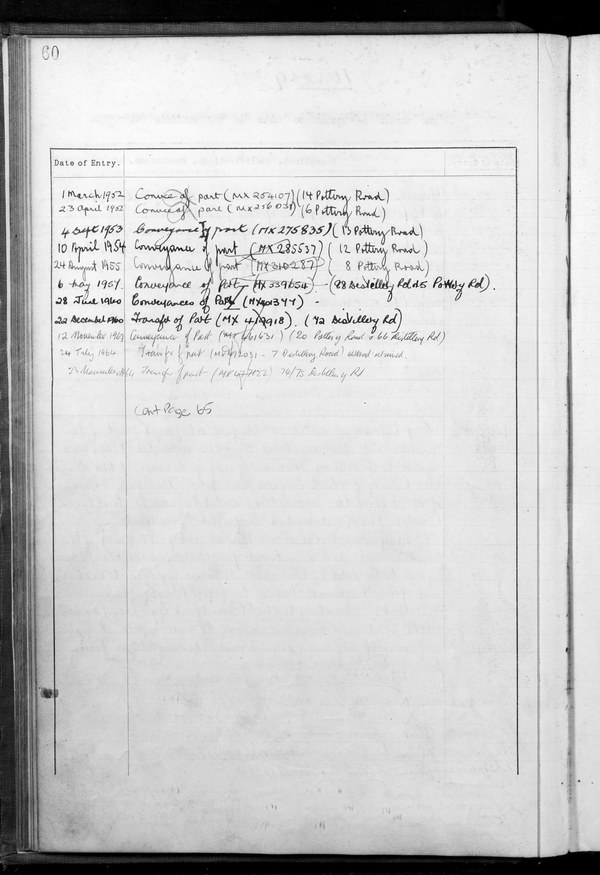 60
Date of Entry.
1 March 1952 Convce of part (MX 254107) (14 Pottery Road)
23 April 1952 Convce of part (MX256031) (6 Pottery Road)
4 Sept 1953 Conveyance of part (MX 275835) (13 Pottery Road)
10 April 1954 Conveyance of part (MX 285537) (12 Pottery Road)
24 August 1955 Conveyance of part (MX 310287) (8 Pottery Road)
6 May 1957 Conveyance of Part MX 339654) (88 Distillery Rd & 5 Pottery Rd).
28 June 1960 Conveyances of Part
22 December 1960 Transfer of Part (MX 412918). (72 Distillery Rd)
12 November 1963 Conveyance of Part (20 Pottery Road & 66 Distillery Rd)
24 July 1964 Transfer of part - 7 Distillery Road)
Transfer of part 74/75 Distillery Rd
Cont Page 65